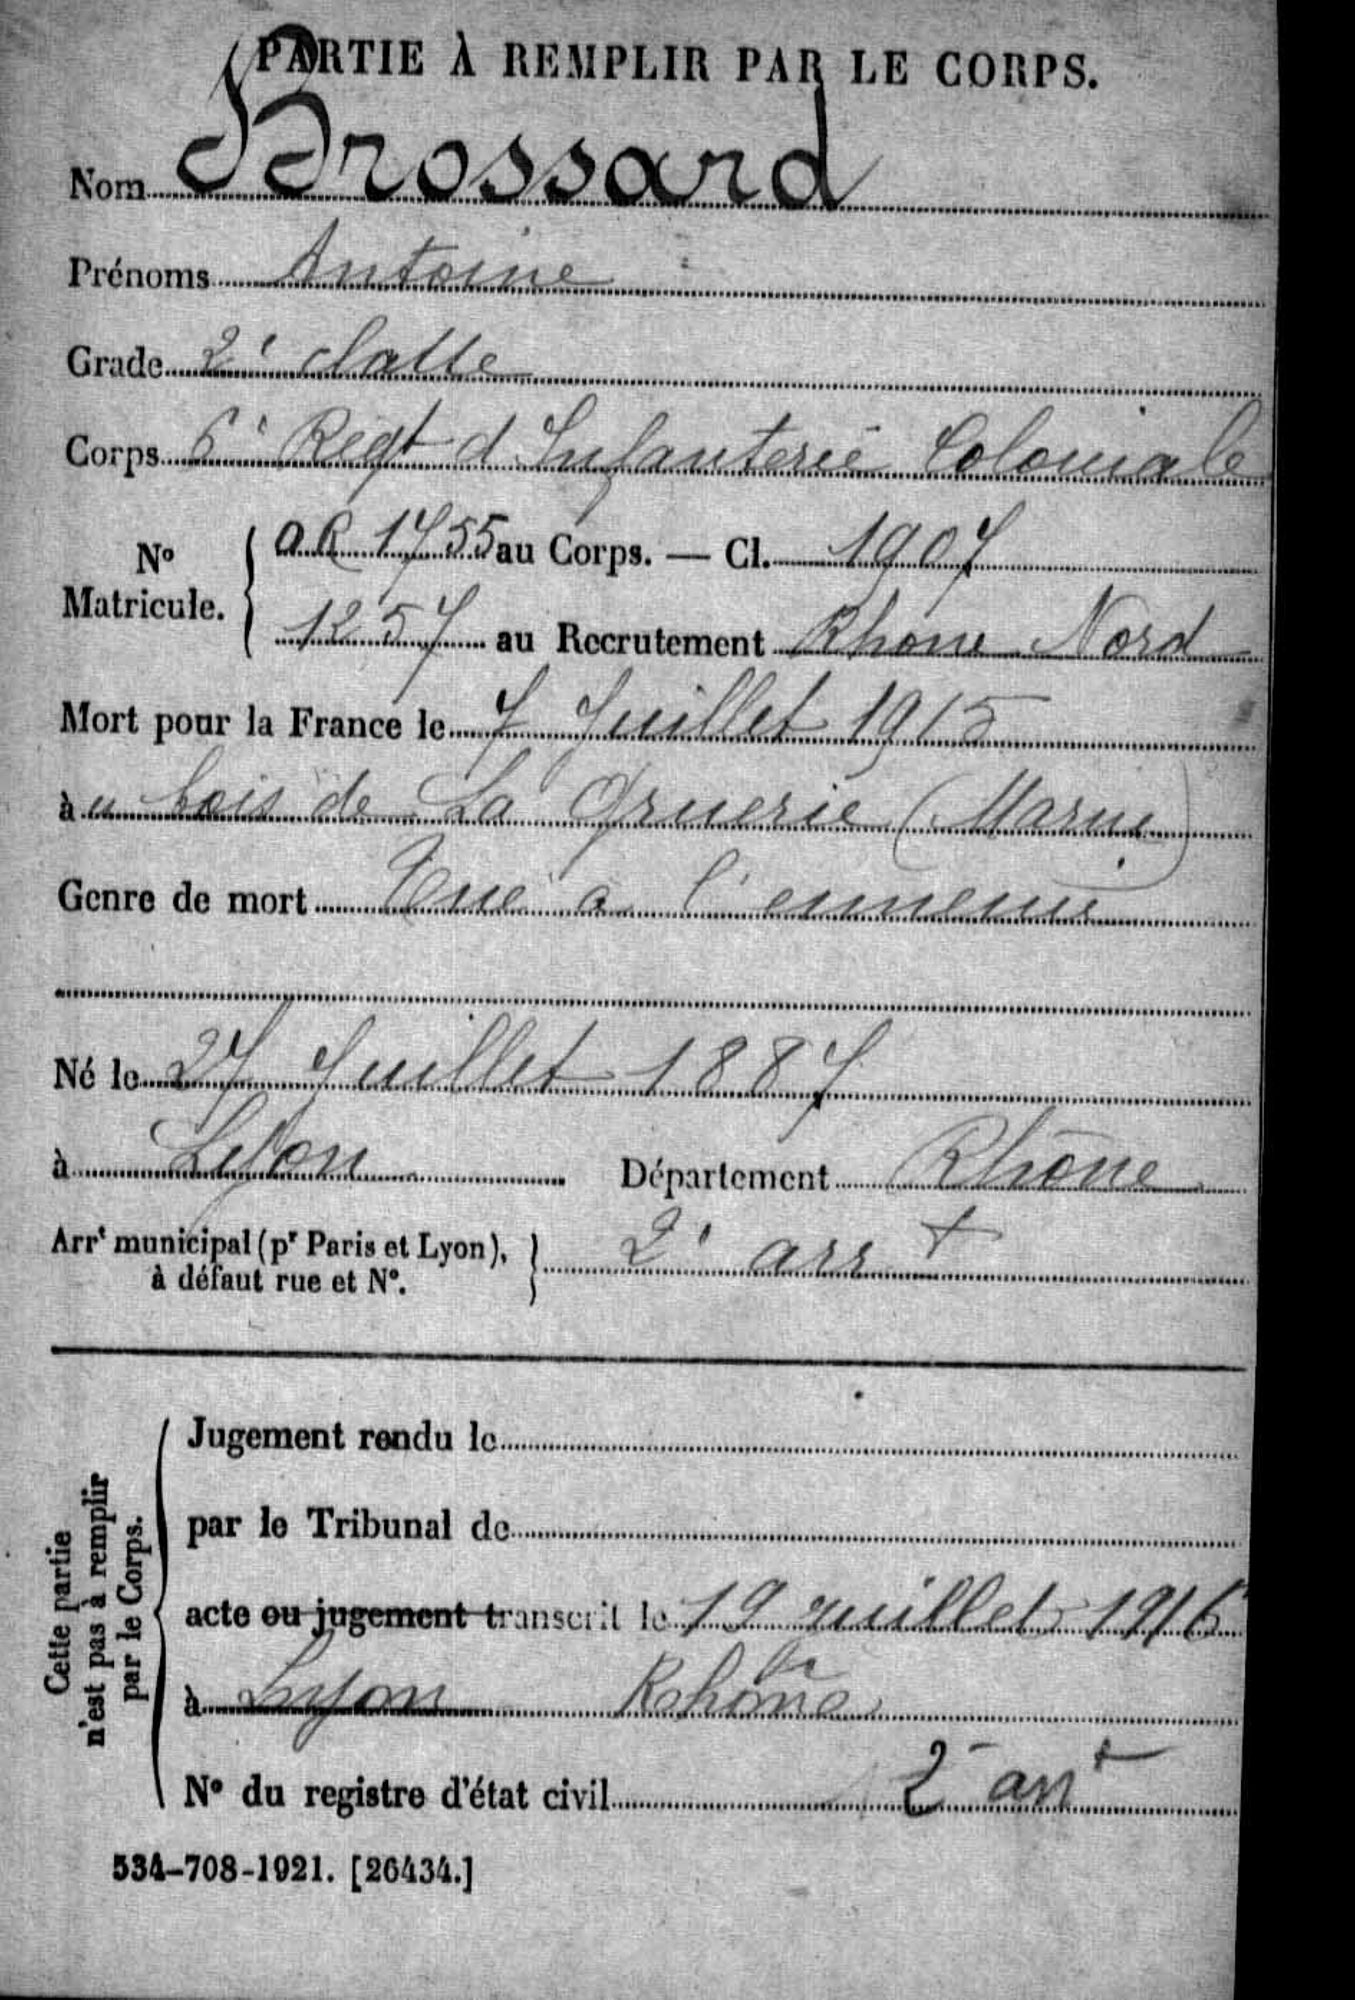 PARTIE À REMPLIR PAR LE CORPS.
Nom Brossard
Prénoms Antoine
Grade 2e classe
Corps 6e Regt d Infanterie Coloniale
No Matricule. { OR 1755 au Corps. — Cl. 1907
1257 au Recrutement Rhone Nord
Mort pour la France le 7 Juillet 1915
àu bois de La Gruerie (Marne)
Genre de mort Tué a l'ennemi
Né le 27 Juillet 1887
à Lyon Département Rhône
Arrt municipal (pr Paris et Lyon), à défaut rue et No. } 2e arrt
Cette partie n'est pas à remplir par le Corps.
Jugement rendu le
par le Tribunal de
acte ou jugement transcrit le 19 juillet 1916
à Lyon Rhône
No du registre d'état civil 2e arrt
534-708-1921. [26434.]